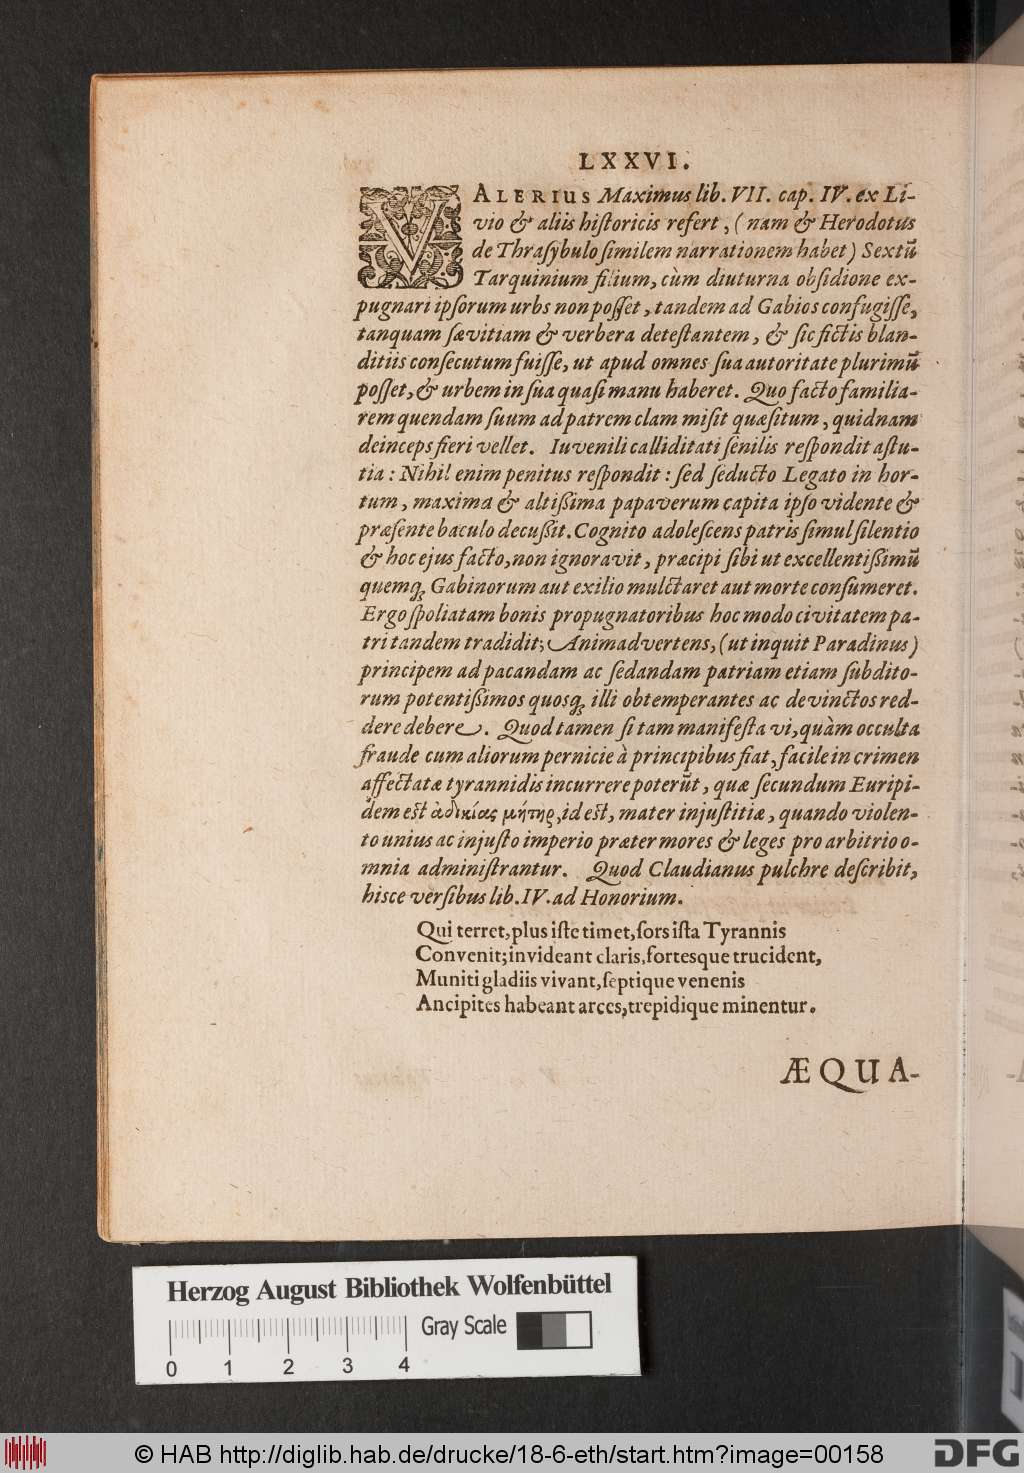 LXXVI.
VALERIUS Maximus lib. VII. cap. IV. ex Li-
vio & aliis hiſtoricis refert, (nam & Herodotus
de Thraſybulo ſimilem narrationem habet) Sextū
Tarquinium filium, cùm diuturna obſidione ex-
pugnari ipſorum urbs non poſſet, tandem ad Gabios confugiſſe,
tanquam ſævitiam & verbera deteſtantem, & ſic fictis blan-
ditiis conſecutum fuiſſe, ut apud omnes ſua autoritate plurimū
poſſet, & urbem in ſua quaſi manu haberet. Quo facto familia-
rem quendam ſuum ad patrem clam miſit quæſitum, quidnam
deinceps fieri vellet. Iuvenili calliditati ſenilis reſpondit aſtu-
tia: Nihil enim penitus reſpondit: ſed ſeducto Legato in hor-
tum, maxima & altißima papaverum capita ipſo vidente &
præſente baculo decußit. Cognito adoleſcens patris ſimul ſilentio
& hoc ejus facto, non ignoravit, præcipi ſibi ut excellentißimū
quemq; Gabinorum aut exilio mulctaret aut morte conſumeret.
Ergo ſpoliatam bonis propugnatoribus hoc modo civitatem pa-
tri tandem tradidit; Animadvertens, (ut inquit Paradinus)
principem ad pacandam ac ſedandam patriam etiam ſubdito-
rum potentißimos quosq; illi obtemperantes ac devinctos red-
dere debere. Quod tamen ſi tam manifeſta vi, quàm occulta
fraude cum aliorum pernicie à principibus fiat, facile in crimen
affectatæ tyrannidis incurrere poterūt, quæ ſecundum Euripi-
dem eſt ἀδικίας μήτηρ, id eſt, mater injuſtitiæ, quando violen-
to unius ac injuſto imperio præter mores & leges pro arbitrio o-
mnia adminiſtrantur. Quod Claudianus pulchre deſcribit,
hisce verſibus lib. IV. ad Honorium.
Qui terret, plus iſte timet, ſors iſta Tyrannis
Convenit; invideant claris, fortesque trucident,
Muniti gladiis vivant, ſeptique venenis
Ancipites habeant arces, trepidique minentur.
ÆQUA-
Herzog August Bibliothek Wolfenbüttel
Gray Scale
0 1 2 3 4
© HAB http://diglib.hab.de/drucke/18-6-eth/start.htm?image=00158
DFG